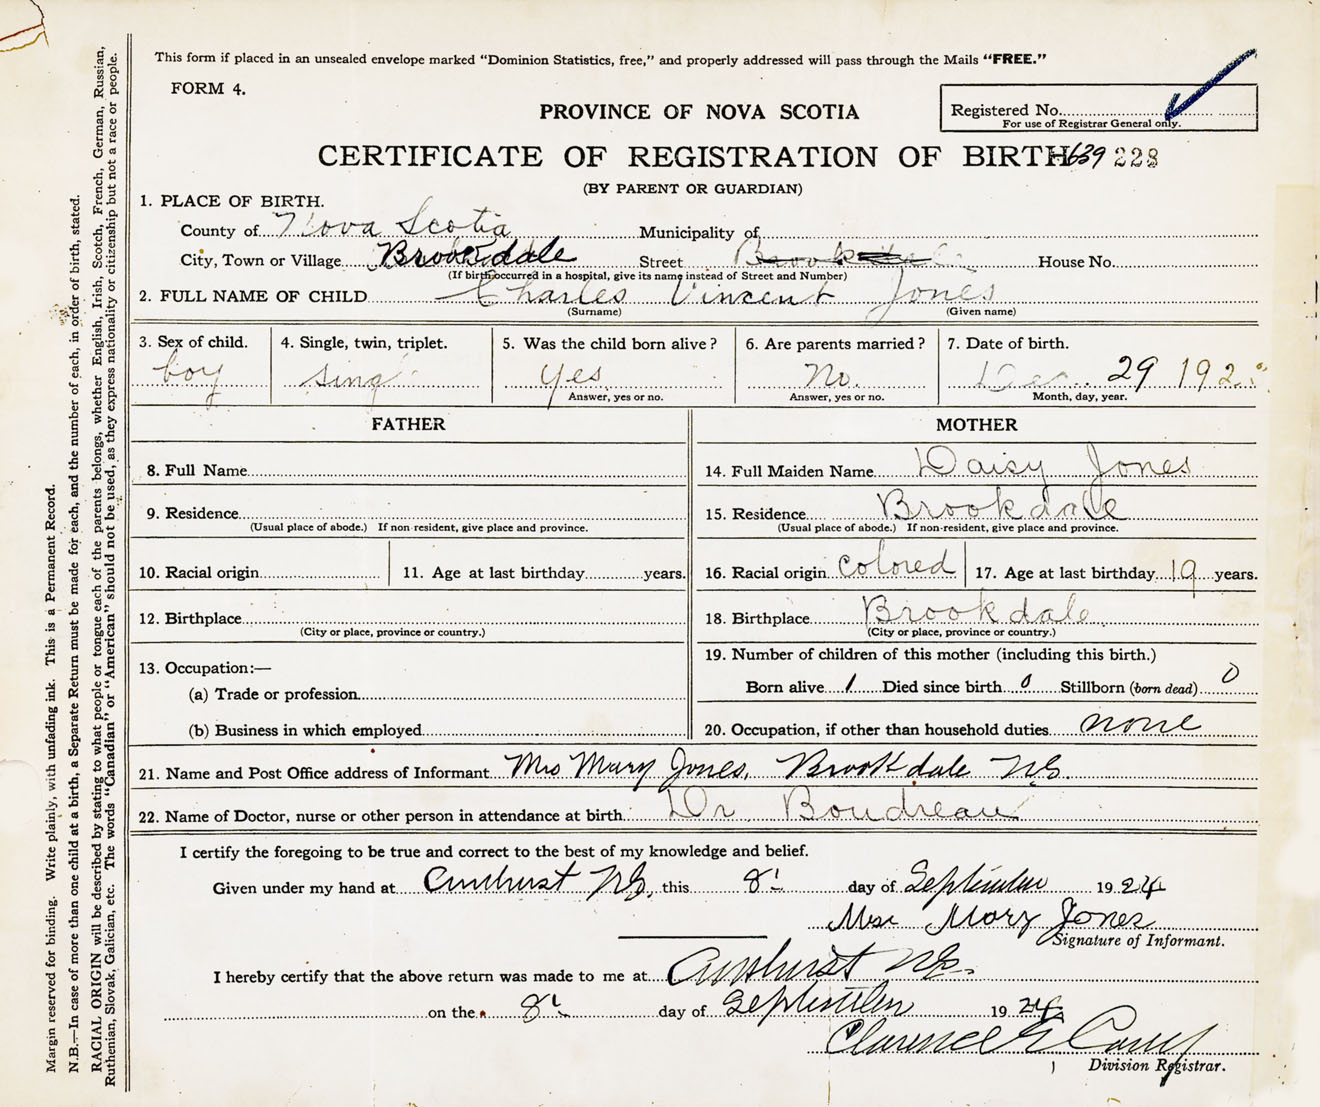 This form if placed in an unsealed envelope marked "Dominion Statistics, free," and properly addressed will pass through the Mails "FREE."
FORM 4.
PROVINCE OF NOVA SCOTIA
Registered No.
For use of Registrar General only.
CERTIFICATE OF REGISTRATION OF BIRTH 639 228
(BY PARENT OR GUARDIAN)
1. PLACE OF BIRTH.
County of Nova Scotia Municipality of
City, Town or Village Brookdale Street Brookdale House No.
(If birth occurred in a hospital, give its name instead of Street and Number)
2. FULL NAME OF CHILD Charles Vincent Jones
(Surname) (Given name)
3. Sex of child. 4. Single, twin, triplet. 5. Was the child born alive? 6. Are parents married? 7. Date of birth.
boy Yes No. Dec. 29
Answer, yes or no. Answer, yes or no. Month, day, year.
FATHER MOTHER
8. Full Name 14. Full Maiden Name Daisy Jones
9. Residence 15. Residence Brookdale
(Usual place of abode.) If non-resident, give place and province. (Usual place of abode.) If non-resident, give place and province.
10. Racial origin 11. Age at last birthday years. 16. Racial origin Colored 17. Age at last birthday 19 years.
12. Birthplace 18. Birthplace Brookdale
(City or place, province or country.) (City or place, province or country.)
13. Occupation:— 19. Number of children of this mother (including this birth.)
(a) Trade or profession Born alive 1 Died since birth 0 Stillborn (born dead) 0
(b) Business in which employed 20. Occupation, if other than household duties none
21. Name and Post Office address of Informant Mrs Mary Jones, Brookdale N.S.
22. Name of Doctor, nurse or other person in attendance at birth Dr Boudreau
I certify the foregoing to be true and correct to the best of my knowledge and belief.
Given under my hand at Amhurst N.S., this 8 day of September 1924
Mrs Mary Jones
Signature of Informant.
I hereby certify that the above return was made to me at Amhurst N.S.
on the 8 day of September 1924
Clarence E
Division Registrar.
Margin reserved for binding. Write plainly, with unfading ink. This is a Permanent Record.
N.B.—In case of more than one child at a birth, a Separate Return must be made for each, and the number of each, in order of birth, stated.
RACIAL ORIGIN will be described by stating to what people or tongue each of the parents belongs, whether English, Irish, Scotch, French, German, Russian,
Ruthenian, Slovak, Galician, etc. The words "Canadian" or "American" should not be used, as they express nationality or citizenship but not a race or people.